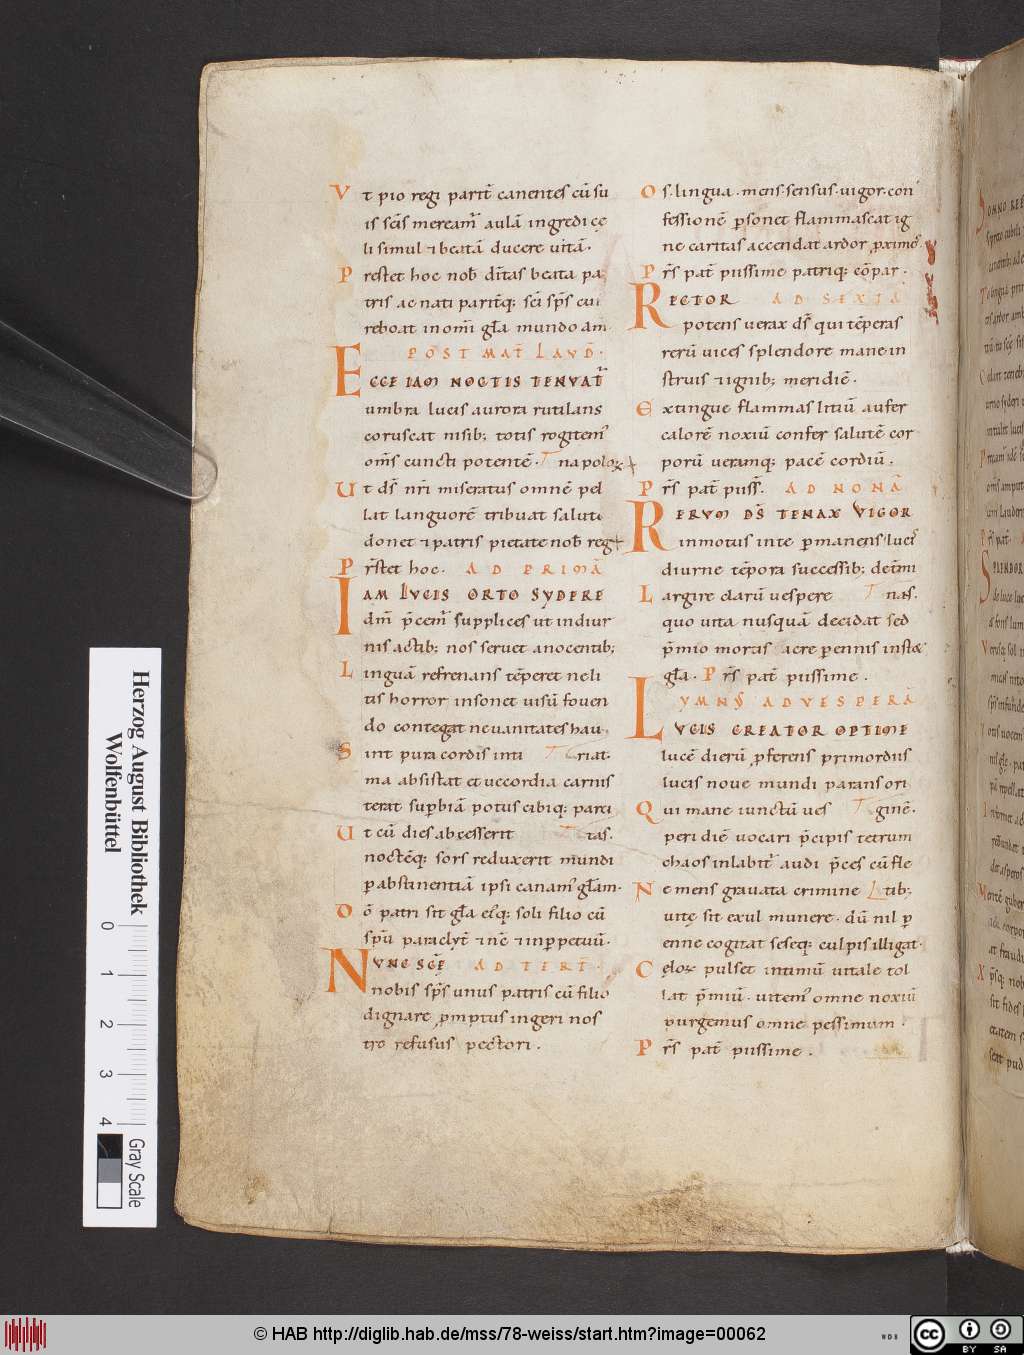 Vt pio regi parit̄ canentes cū su
is sc̄is meream᷒ aulā ingredi cę
li simul ⁊ beatā ducere vitā.
Prestet hoc nob̄ dītas beata pa
tris ac nati paritq; sc̄i sp̄s cui
reboat in om̄i gl̄a mundo am̄
POST MAT̄ LAVD̄.
ECCE IAM NOCTIS TENVAT᷒
umbra lucis aurora rutilans
coruscat nisib; totis rogitem᷒
om̄s cuncti potentē.
Ut d̄s nr̄i miseratus omnē pel
lat languorē tribuat salutē
donet ⁊ patris pietate nob̄ reg
Pr̄stet hoc. AD PRIMĀ
IAM LVCIS ORTO SYDERE
dm̄ p̄cem᷒ supplices ut in diur
nis actib; nos servet a nocentib;
Linguā refrenans tēperet ne li
tis horror insonet visū foven
do contegat ne vanitates hau
Sint pura cordis inti Triat.
ma absistat et vecordia carnis
terat sup̄biā potus cibiq; parci
Ut cū dies abscesserit Ttas.
noctēq; sors reduxerit mundi
p abstinentiā ipsi canam᷒ gl̄am.
Dō patri sit gl̄a ei᷒q; soli filio cū
sp̄u paraclyt̄ ⁊ nc̄ ⁊ inp̄petuū.
NVNC SC̄E AD TERT̄.
nobis sp̄s unus patris cū filio
dignare p̄mptus ingeri nos
tro refusus pectori.
Os. lingua. mens. sensus. vigor. con
fessionē p̄sonet flammascat ig
ne caritas accendat ardor p̄ximos.
Pr̄s pat̄ piissime patriq; cōpar.
RECTOR AD SEXTĀ
potens verax d̄s qui tēperas
rerū vices splendore mane in
struis ⁊ ignib; meridiē.
Extingue flammas litiū aufer
calorē noxiū confer salutē cor
porū veramq; pacē cordiū.
Pr̄s pat̄ piiss̄. AD NONĀ
RERVM D̄S TENAX VIGOR
inmotus in te p̄manens lucis
diurne tēpora successib; det̄mi
Largire clarū vespere Tnas.
quo vita nusquā decidat sed
p̄mio mortis sacre p̄ennis inst&
gl̄a. Pr̄s pat̄ piissime.
YMN̄S AD VESPERĀ
LVCIS CREATOR OPTIME
lucē dierū p̄ferens primordiis
lucis nove mundi parans ori
Qui mane iunctū ves Tginē.
peri diē vocari p̄cipis tetrum
chaos inlabit᷒ audi p̄ces cū fle
Ne mens gravata crimine Ltib;
vitę sit exul munere. dū nil p
enne cogitat seseq; culpis illigat.
Cęlorū pulset intimū vitale tol
lat p̄miū. vitem᷒ omne noxiū
purgemus omne pessimum.
Pr̄s pat̄ piissime.
Herzog August Bibliothek
Wolfenbüttel
0 1 2 3 4
Gray Scale
© HAB http://diglib.hab.de/mss/78-weiss/start.htm?image=00062
WDB
CC BY SA